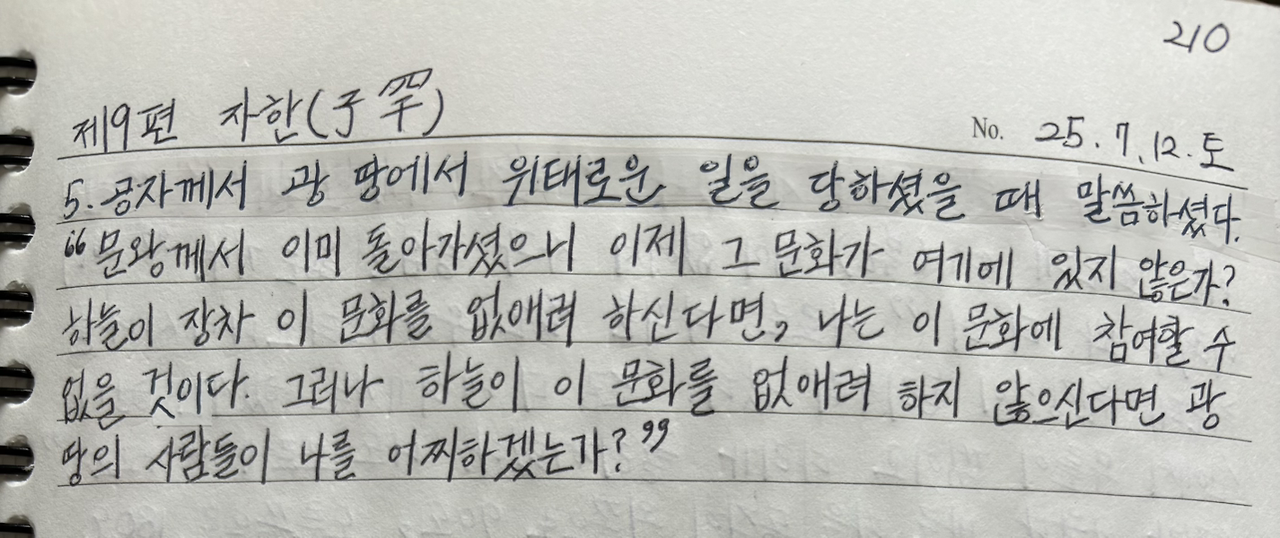 210
제9편 자한(子罕)
No. 25.7.12.토
5. 공자께서 광 땅에서 위태로운 일을 당하셨을 때 말씀하셨다.
“문왕께서 이미 돌아가셨으니 이제 그 문화가 여기에 있지 않은가?
하늘이 장차 이 문화를 없애려 하신다면, 나는 이 문화에 참여할 수
없을 것이다. 그러나 하늘이 이 문화를 없애려 하지 않으신다면 광
땅의 사람들이 나를 어찌하겠는가?”